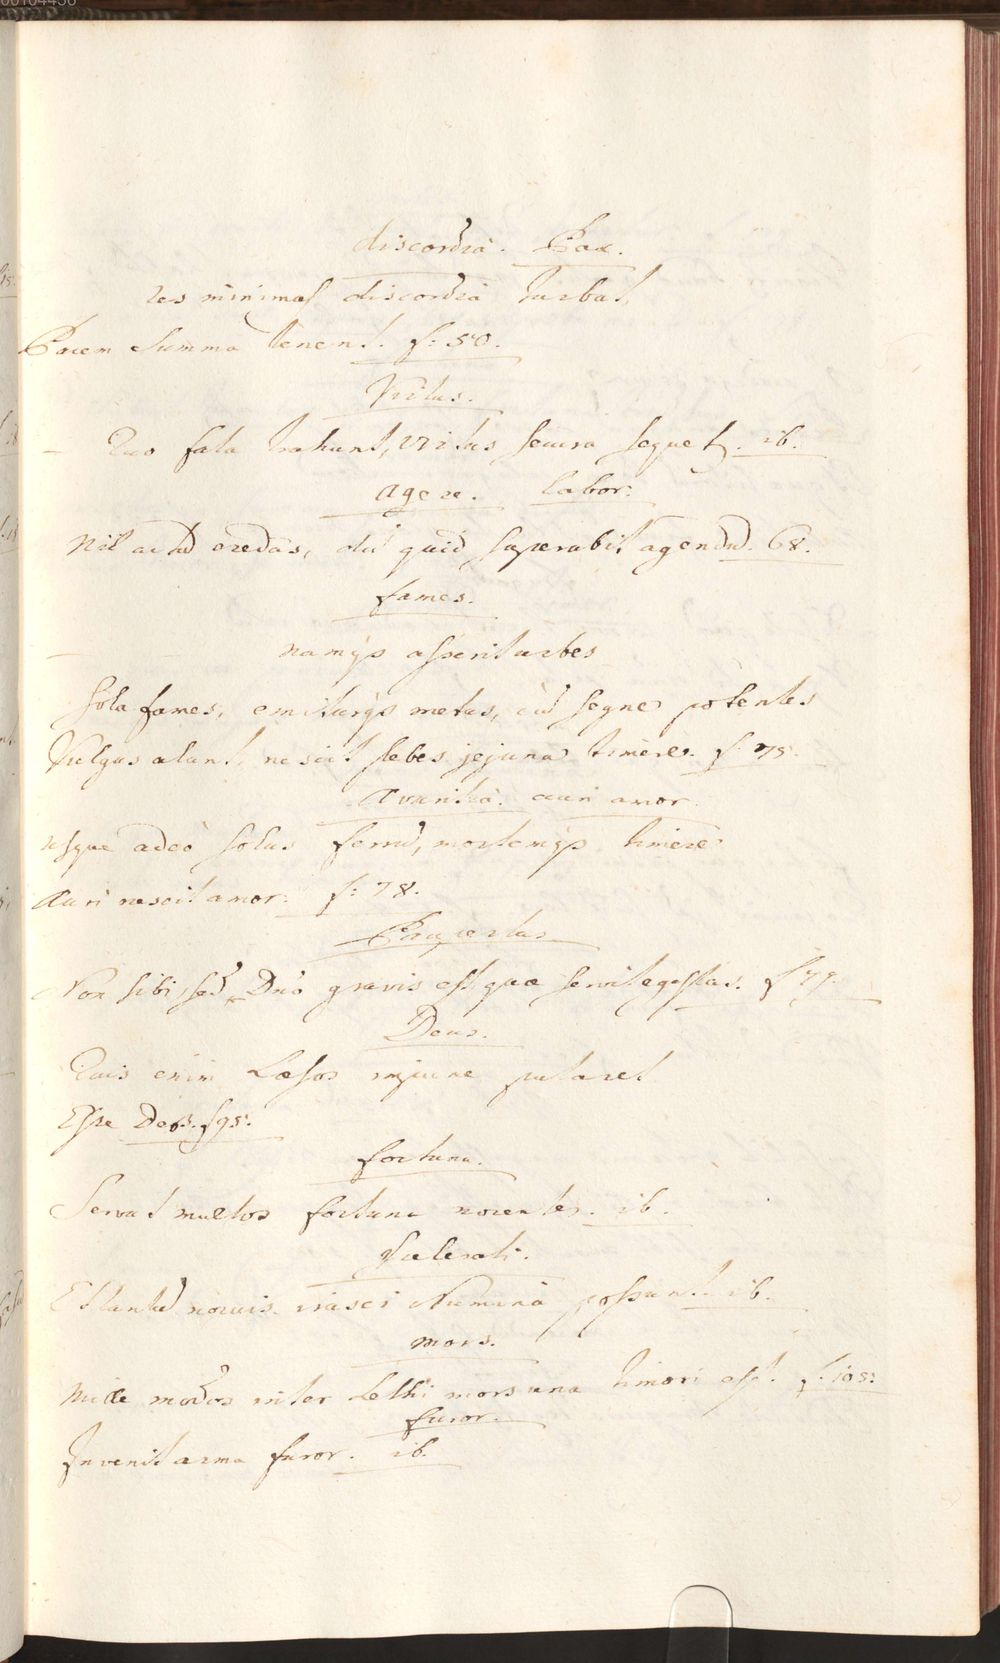 00104456
discordia. Pax.
res minimas discordia turbat,
Pacem summa tenent. f: 50.
Virtus.
Quo fata trahunt, virtus secura sequet. ib.
agere. Labor:
Nil actu credas, cu quid superabit agendu. 68.
fames.
namqs asserit urbes
sola fames, emiturqs metus, cu segne potentes
Vulgus alunt, nescit plebes jejuna timere. f. 75.
avaritia. auri amor.
usque adeo solus ferru, mortemqs timere
Auri nescit amor. f: 78.
Paupertas
Non sibi, sed Dno gravis est quae servit egestas. f 79.
Deus.
Quis enim Laesos impune putaret
Esse Deos. f 95.
fortuna.
Servat multos fortuna nocentes. ib.
Scelerati.
Et tantu nocuis irasci Numina possunt. ib.
mors.
Mille modos inter Lethi mors una timori est. f. 105:
furor.
Invenit arma furor. ib.